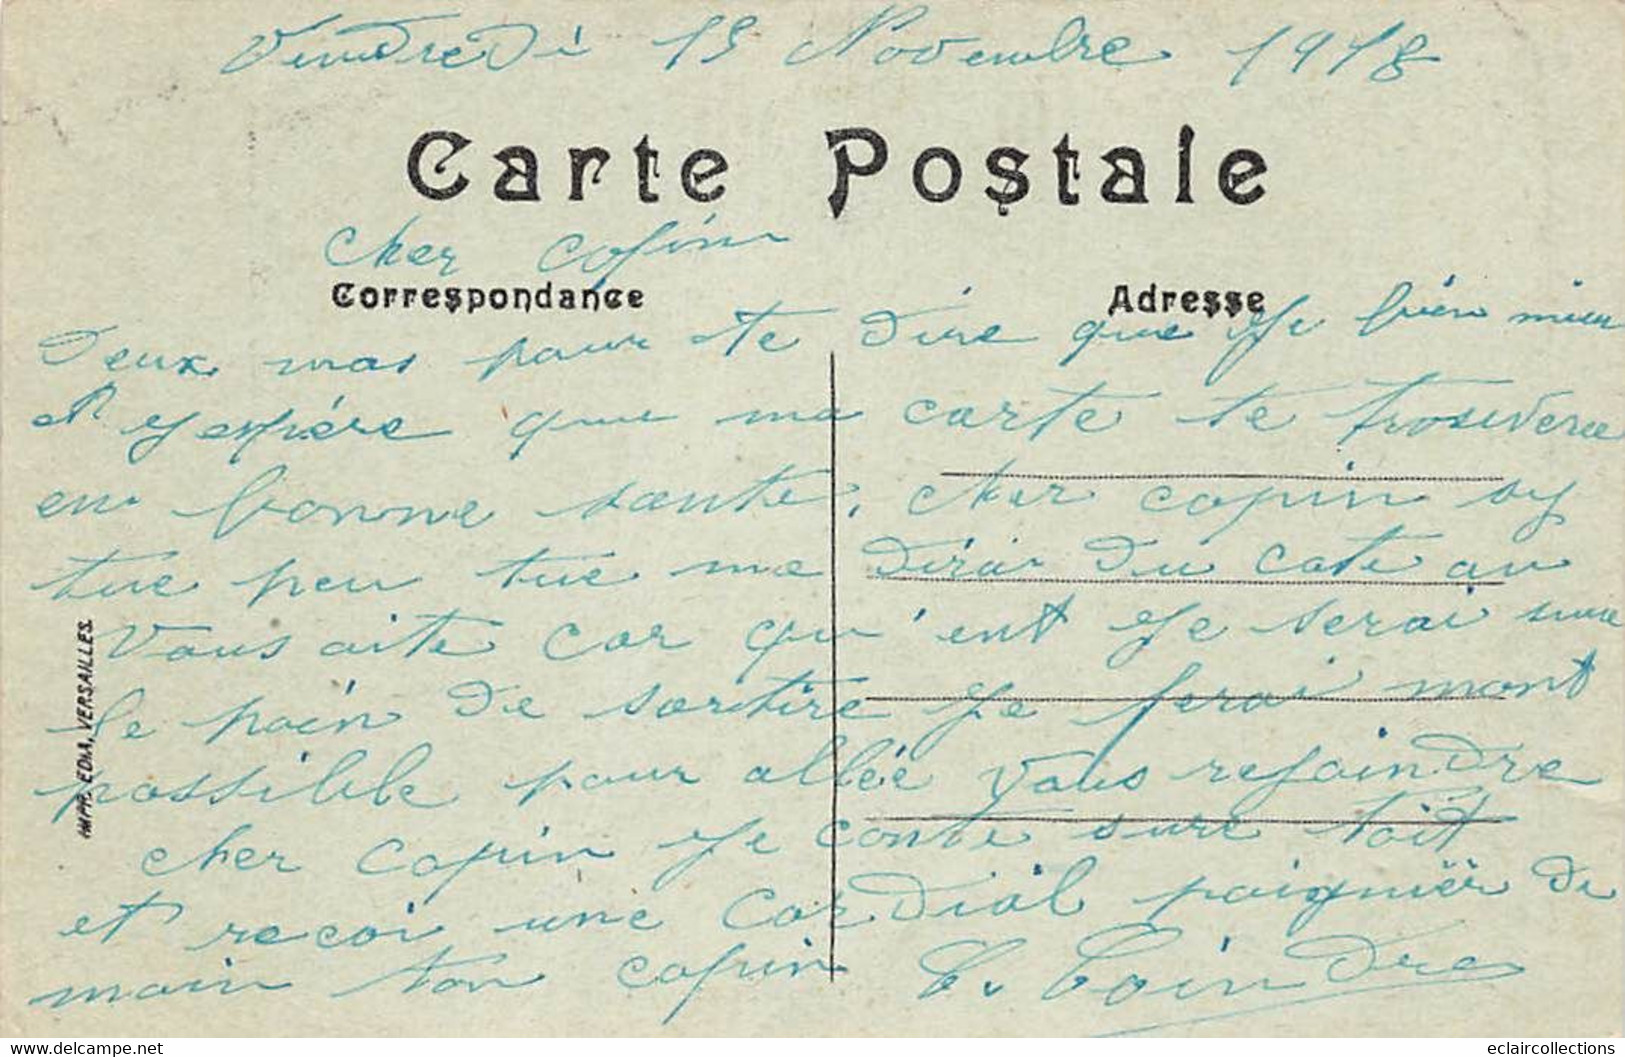 Vendredi 15 Novembre 1918
Carte Postale
Cher copin
Correspondance
Adresse
Deux mas pour te dire que je bien
et jespére que ma carte te trouvera
en bonne sante, cher copin sy
tue peu tue me dirai du cote au
vous aite car qu'ent je serai sure
le poin de sortire je ferai mont
possible pour allée vous rejoindre
cher copin je conte sure toit
et recoi une cordial poigniër de
main ton copin
IMPR. EDIA, VERSAILLES.
eclaircollections
https://www.delcampe.net